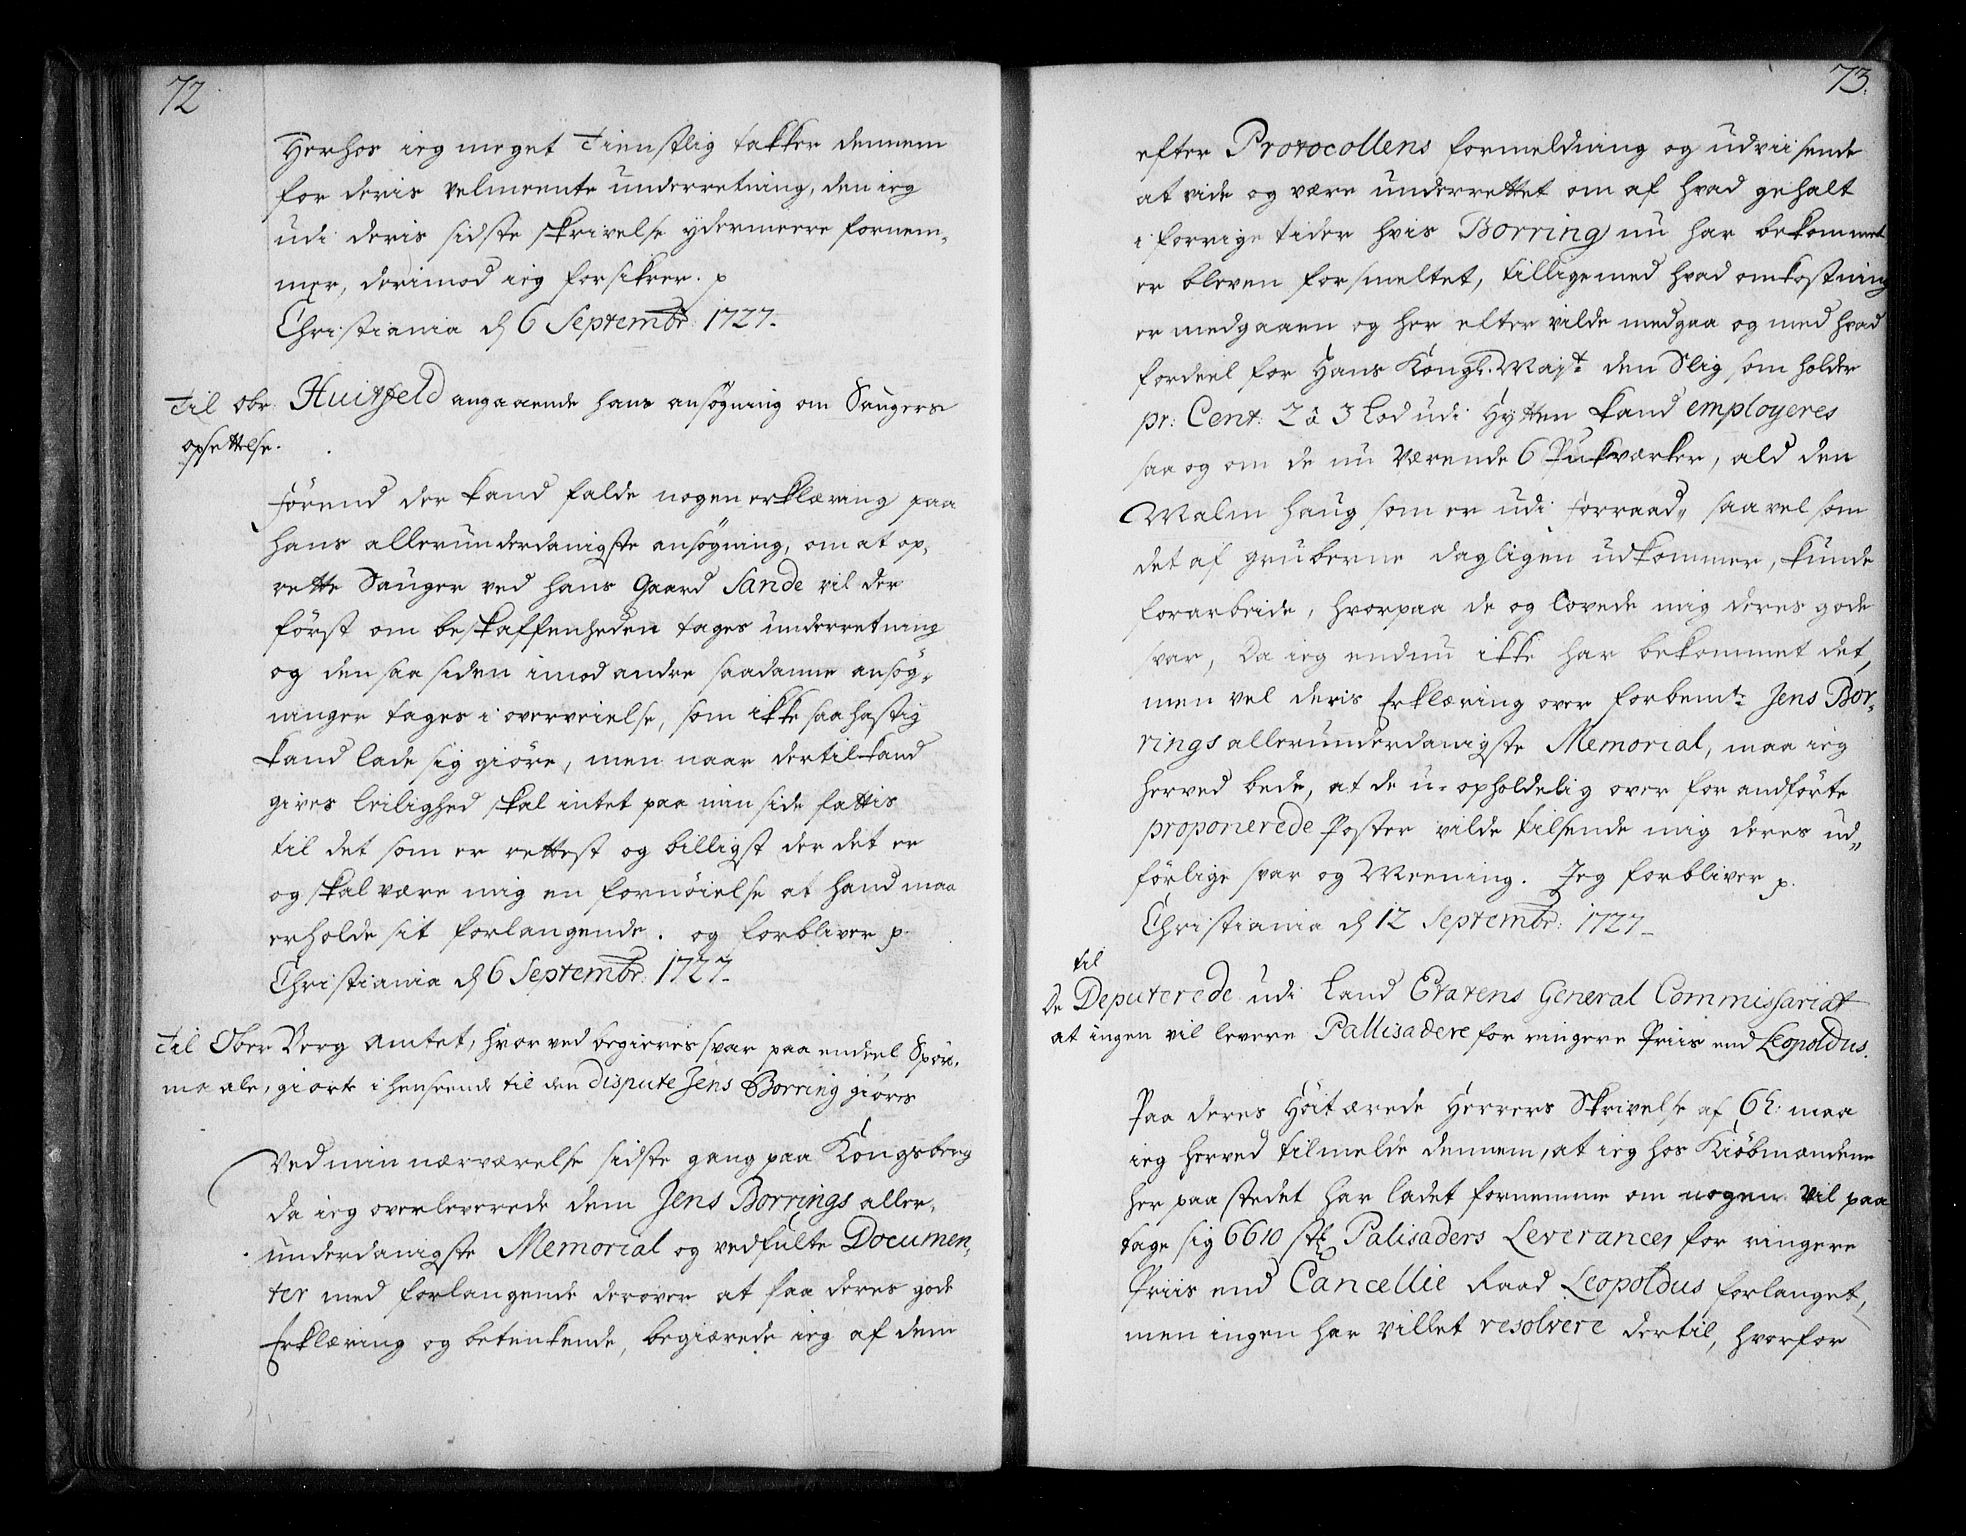 72
Herhos ieg meget tienstlig takker dennem
for deris velmeente underretning, den ieg
udi deris sidste skrivelse ydermeere fornem-
mer, derimod ieg forsikrer. p
Christiania d 6 Septembr: 1727.
Til Obr: Huitfeld angaaende hans ansögning om Saugers
opsettelse.
Förend der kand falde nogen erklæring paa
hans allerunderdanigste ansögning, om at op-
rette Sauger ved hans Gaard Sande vil der
först om beskaffenheden tages underretning
og den saa siden imod andre saadanne ansög-
ninger tages i overveielse, som ikke saa hastig
kand lade sig giöre, men naar dertil kand
gives leilighed skal intet paa min side fattis
til det som er rettest og billigst der det er
og skal være mig en fornöielse at hand maa
erholde sit forlangende. og forbliver p.
Christiania d 6 Septembr: 1727.
Til Ober Berg Amtet, hvorved begieres svar paa endeel Spörs-
maale, giorte i henseende til den dispute Jens Borring giöres
Ved min nærværelse sidste gang paa Kongsberg
da ieg overleverede dem Jens Borrings aller-
underdanigste Memorial og vedfulte Documen-
ter med forlangende derover at faa deres gode
Erklæring og betenkende, begiærede ieg af dem
73.
efter Protocollens formeldning og udviisende
at vide og være underrettet om af hvad gehalt
i forrige tider hvis Borring nu har bekommet
er bleven forsmeltet, tilligemed hvad omkostning
er medgaaen og her efter vilde medgaa og med hvad
fordeel for Hans Kongl. Mayt: den Slig som holder
pr: Cent: 2 à 3 Lod udi Hytten kand employeres
saa og om de nu værende 6 Pukværker, ald den
Malm haug som er udi forraad, saavel som
det af gruberne dagligen udkommer, kunde
forarbeide, hvorpaa de og lovede mig deres gode
svar, Da ieg endnu ikke har bekommet det,
men vel deris Erklæring over forbemte Jens Bor-
rings allerunderdanigste Memorial, maa ieg
herved bede, at de u-opholdelig over for andförte
proponerede Poster vilde tilsende mig deres ud-
förlige svar og Meening. Jeg forbliver p.
Christiania d 12 Septembr: 1727.
til
De Deputerede udi Land Etatens General Commissariat
at ingen vil levere Pallisadere for ringere Priis end Leopoldus.
Paa deres Höitærede Herrers Skrivelse af 6t: maa
ieg herved tilmelde dennem, at ieg hos Kiöbmændene
her paa stedet har ladet fornemme om nogen vil paa
tage sig 6610 stk Palisaders Leverance, for ringere
Priis end Cancellie Raad Leopoldus forlanget,
men ingen har villet resolvere dertil, hvorfor